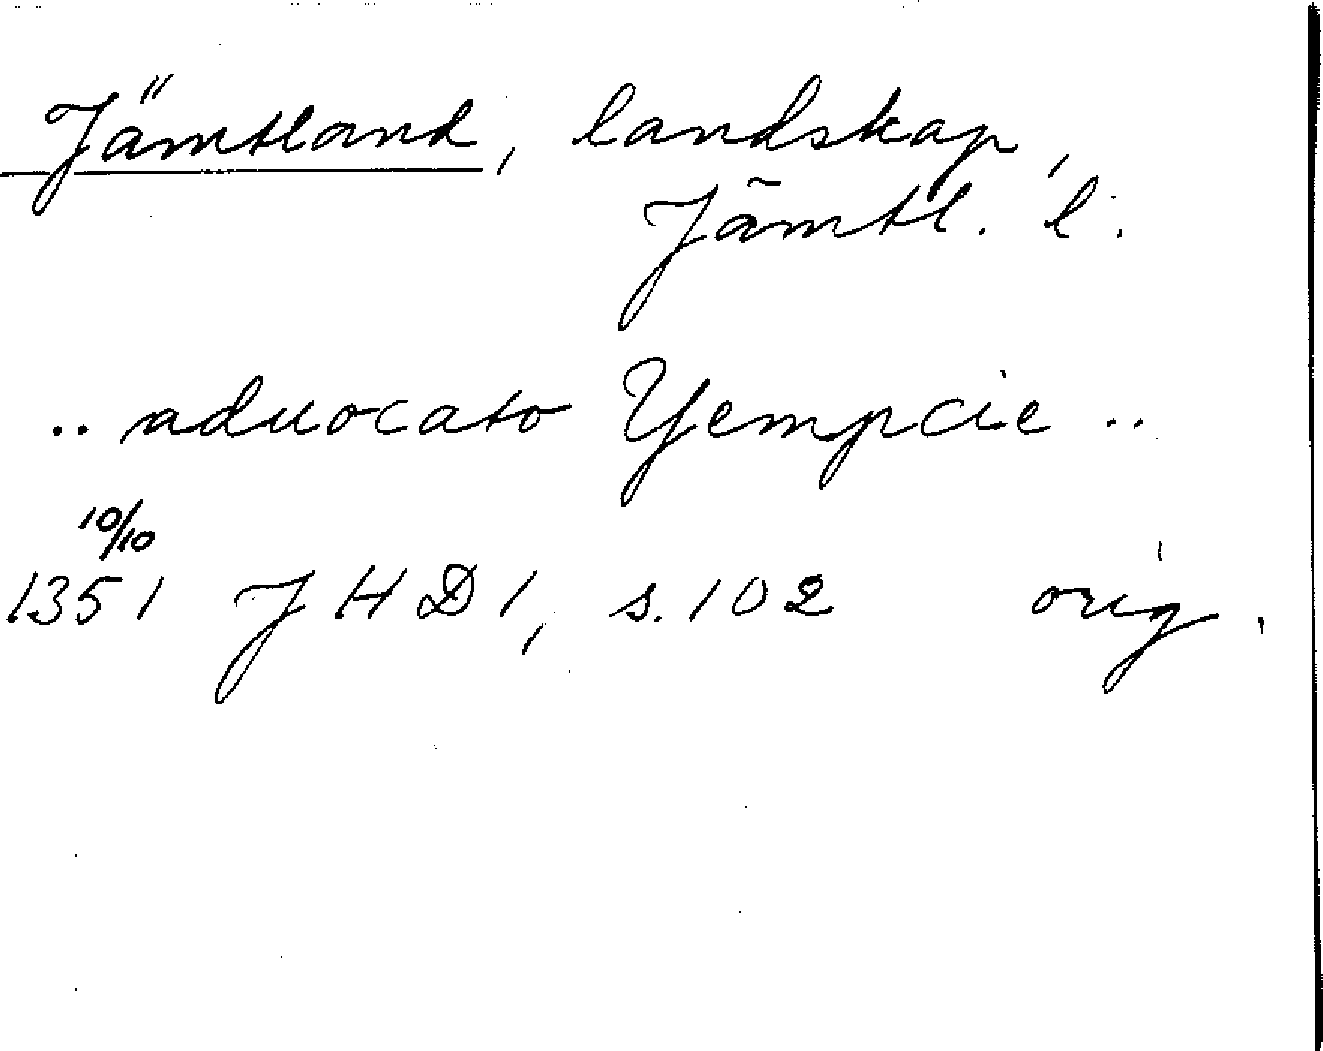 Jämtland, landskap,
Jämtl. l.
.. aduocato Yempcie ..
10/10
1351 JHD1, s. 102 orig.